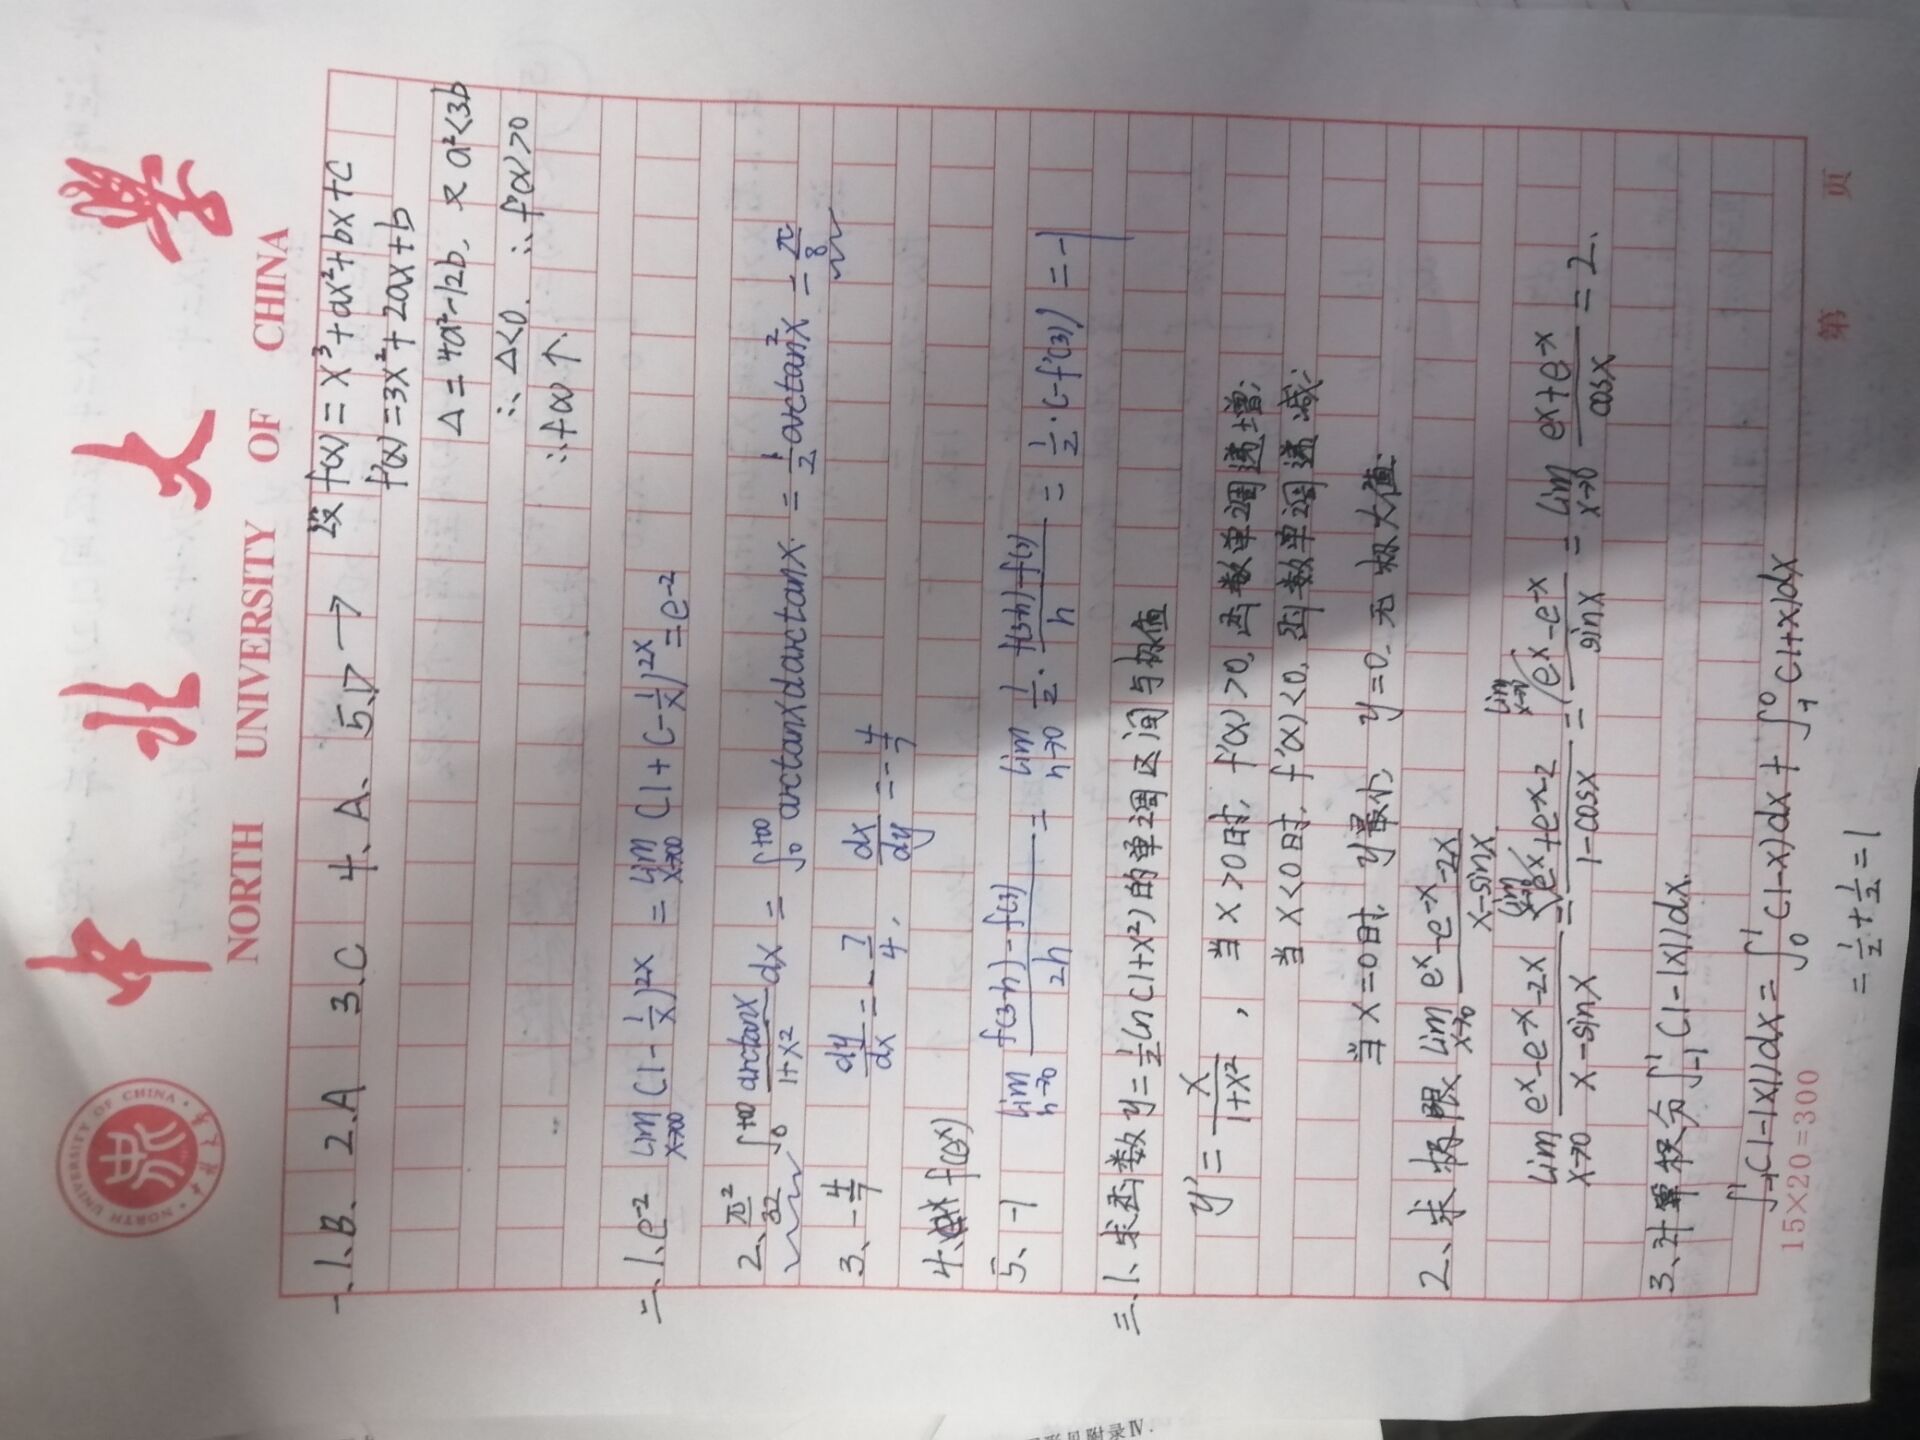 中北大学
NORTH UNIVERSITY OF CHINA
一、1、B、 2.A 3.C 4、A、 5.D → 设 f(x) = x³+ax²+bx+c
f'(x)=3x²+2ax+b
Δ = 4a²-12b, 又 a²<3b
∴ Δ<0. ∴ f'(x)>0
∴f(x) ↑
二、1、e⁻² lim x→∞ (1-1/x)^2x = lim x→∞ (1+(-1/x))^2x = e⁻²
2、π²/32 ∫₀^+∞ arctanx/(1+x²) dx = ∫₀^+∞ arctanx d arctanx. = 1/2 arctan²x = π/8
3、-4/7 dy/dx = -7/4, dx/dy = -4/7
4、f(eˣ)
5、-1 lim h→0 (f(3-h)-f(3))/2h = lim h→0 1/2 · (f(3-h)-f(3))/h = 1/2 · (-f'(3)) = -1
三、1、求函数y=1/2 ln(1+x²)的单调区间与极值
y' = x/(1+x²), 当x>0时, f'(x)>0, 函数单调递增;
当x<0时, f'(x)<0, 函数单调递减;
当x=0时, y最小, y=0. 无极大值.
2、求极限 lim x→0 (eˣ-e⁻ˣ-2x)/(x-sinx)
lim x→0 (eˣ-e⁻ˣ-2x)/(x-sinx) = lim x→0 (eˣ+e⁻ˣ-2)/(1-cosx) = lim x→0 (eˣ-e⁻ˣ)/sinx = lim x→0 (eˣ+e⁻ˣ)/cosx = 2.
3、计算积分∫₋₁¹ (1-|x|)dx.
∫₋₁¹ (1-|x|)dx = ∫₀¹ (1-x)dx + ∫₋₁⁰ (1+x)dx
15×20=300
第 页
= 1/2 + 1/2 = 1